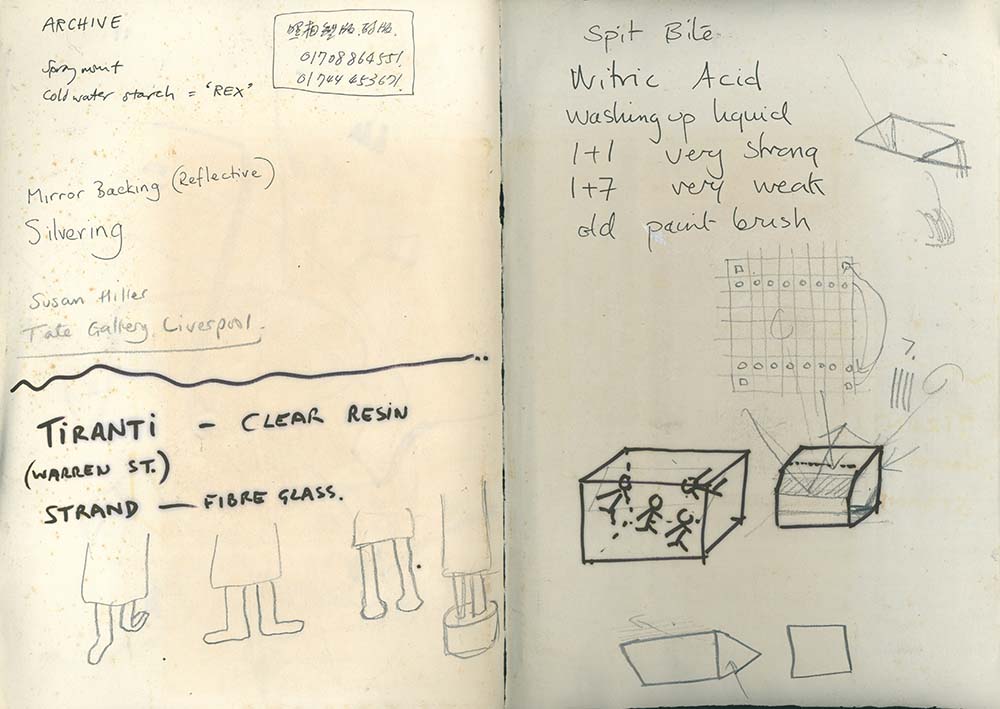 ARCHIVE
Spray mount
Cold water starch = 'REX'
01708864551
01744 453671
Mirror Backing (Reflective)
Silvering
Susan Hiller
Tate Gallery Liverpool.
TiRANTi – CLEAR RESIN
(WARREN ST.)
STRAND — FIBRE GLASS.
Spit Bite
Nitric Acid
washing up liquid
1+1 very strong
1+7 very weak
old paint brush